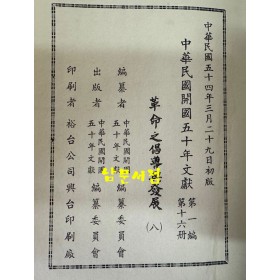 中華民國五十四年三月二十九日初版
中華民國開國五十年文獻 第一編 第十六册
革命之倡導與發展(八)
編纂者 中華民國開國五十年文獻 編纂委員會
出版者 中華民國開國五十年文獻 編纂委員會
印刷者 裕台公司興台印刷廠
남문서점